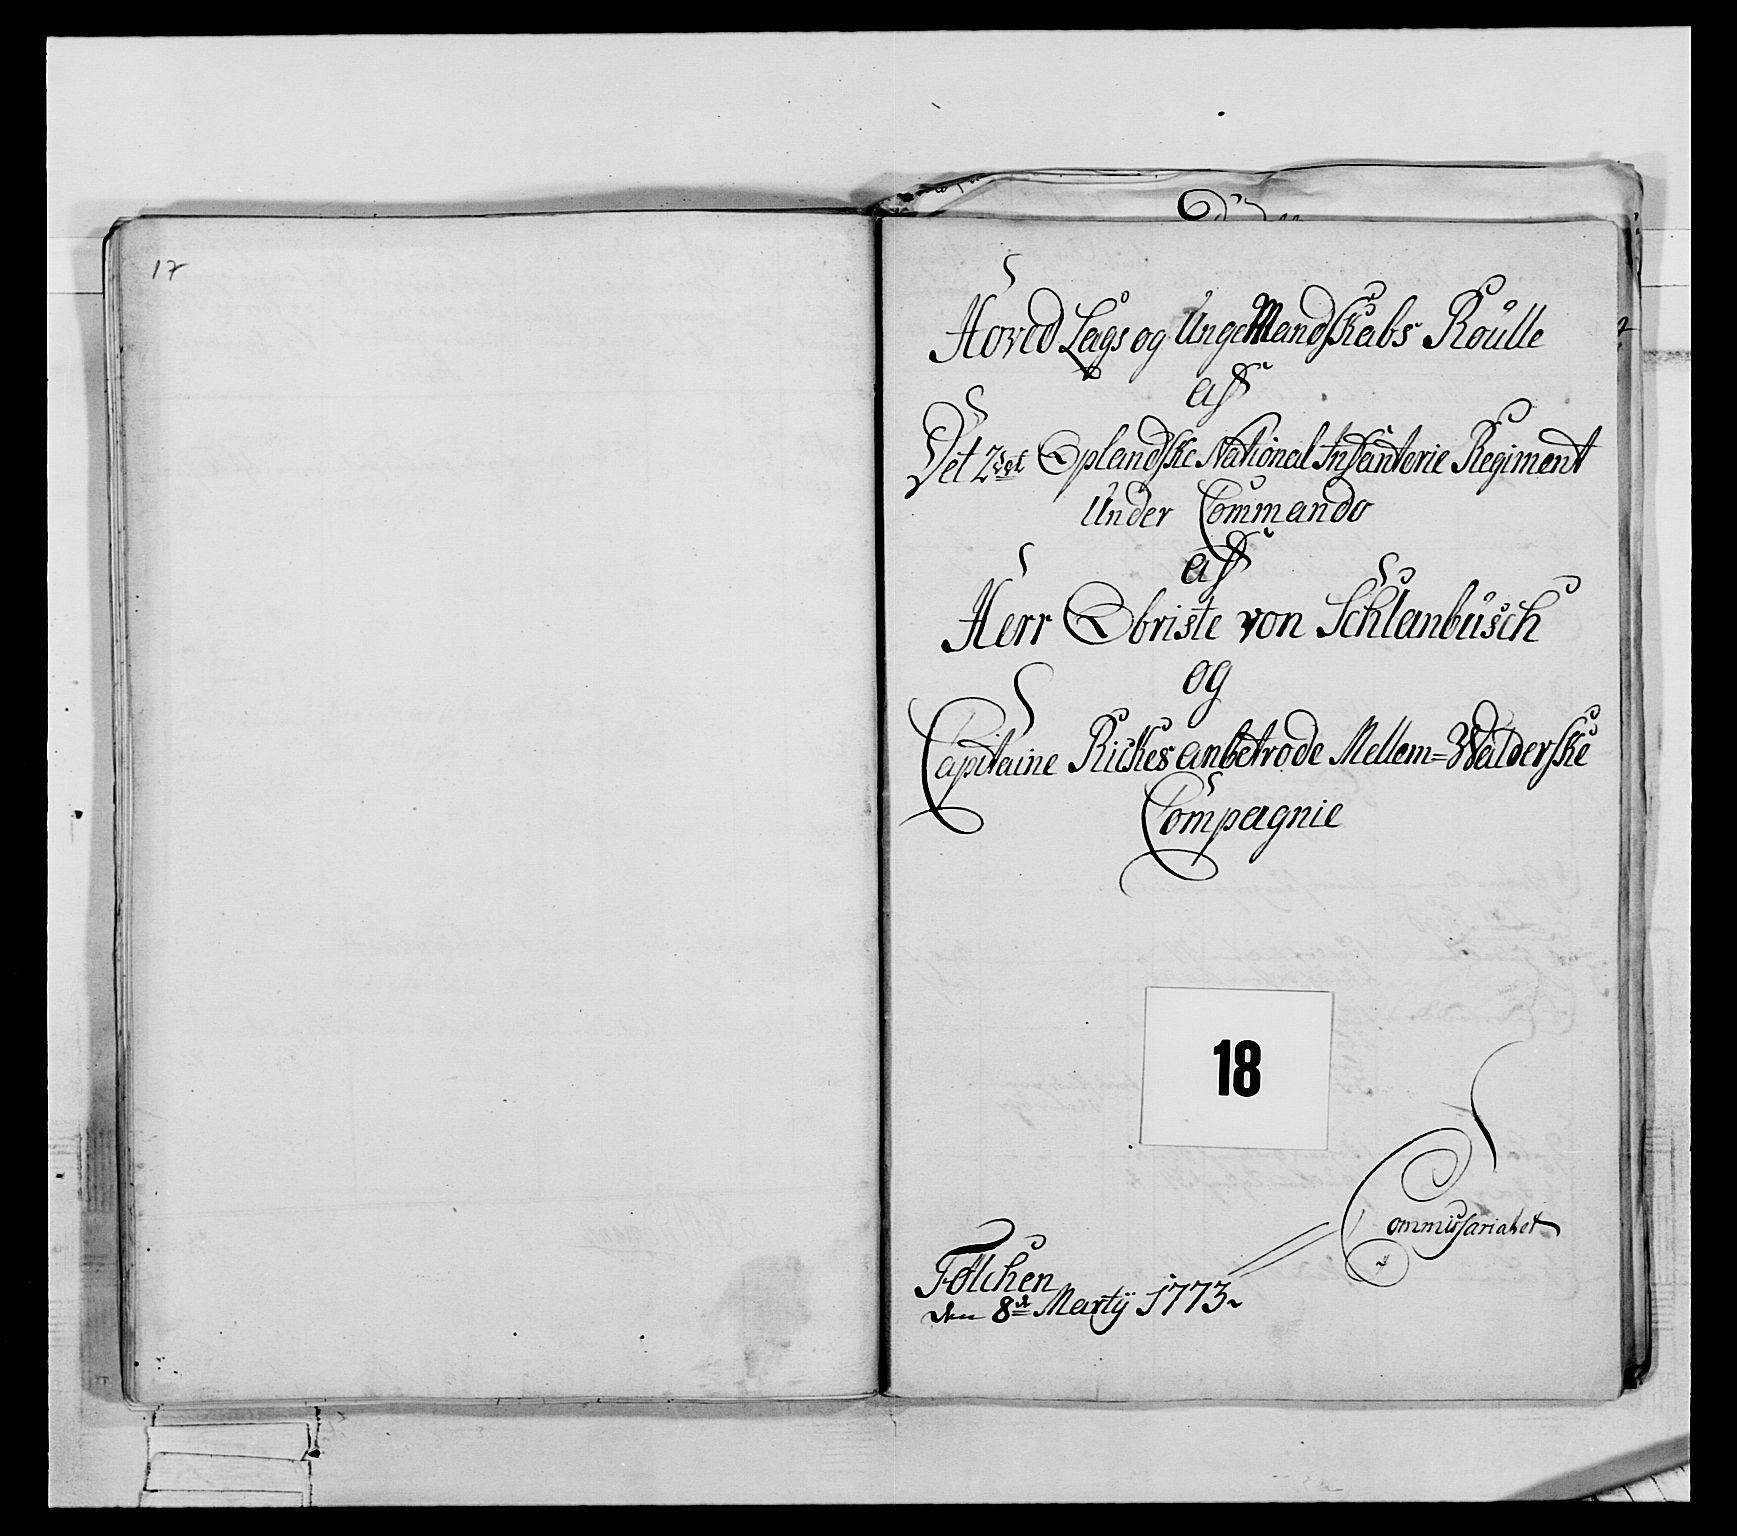 17
Hoved Lags og Unge Mandskabs Roulle
aff
Det 2det Oplandske National Infanterie Regiment
Under Commando
aff
Herr Obriste von Schlanbusch
og
Capitaine Rickes anbetrode Mellem=Walderske
Compagnie
18
Commissariatet
Tolchen
den 8de Martÿ 1773